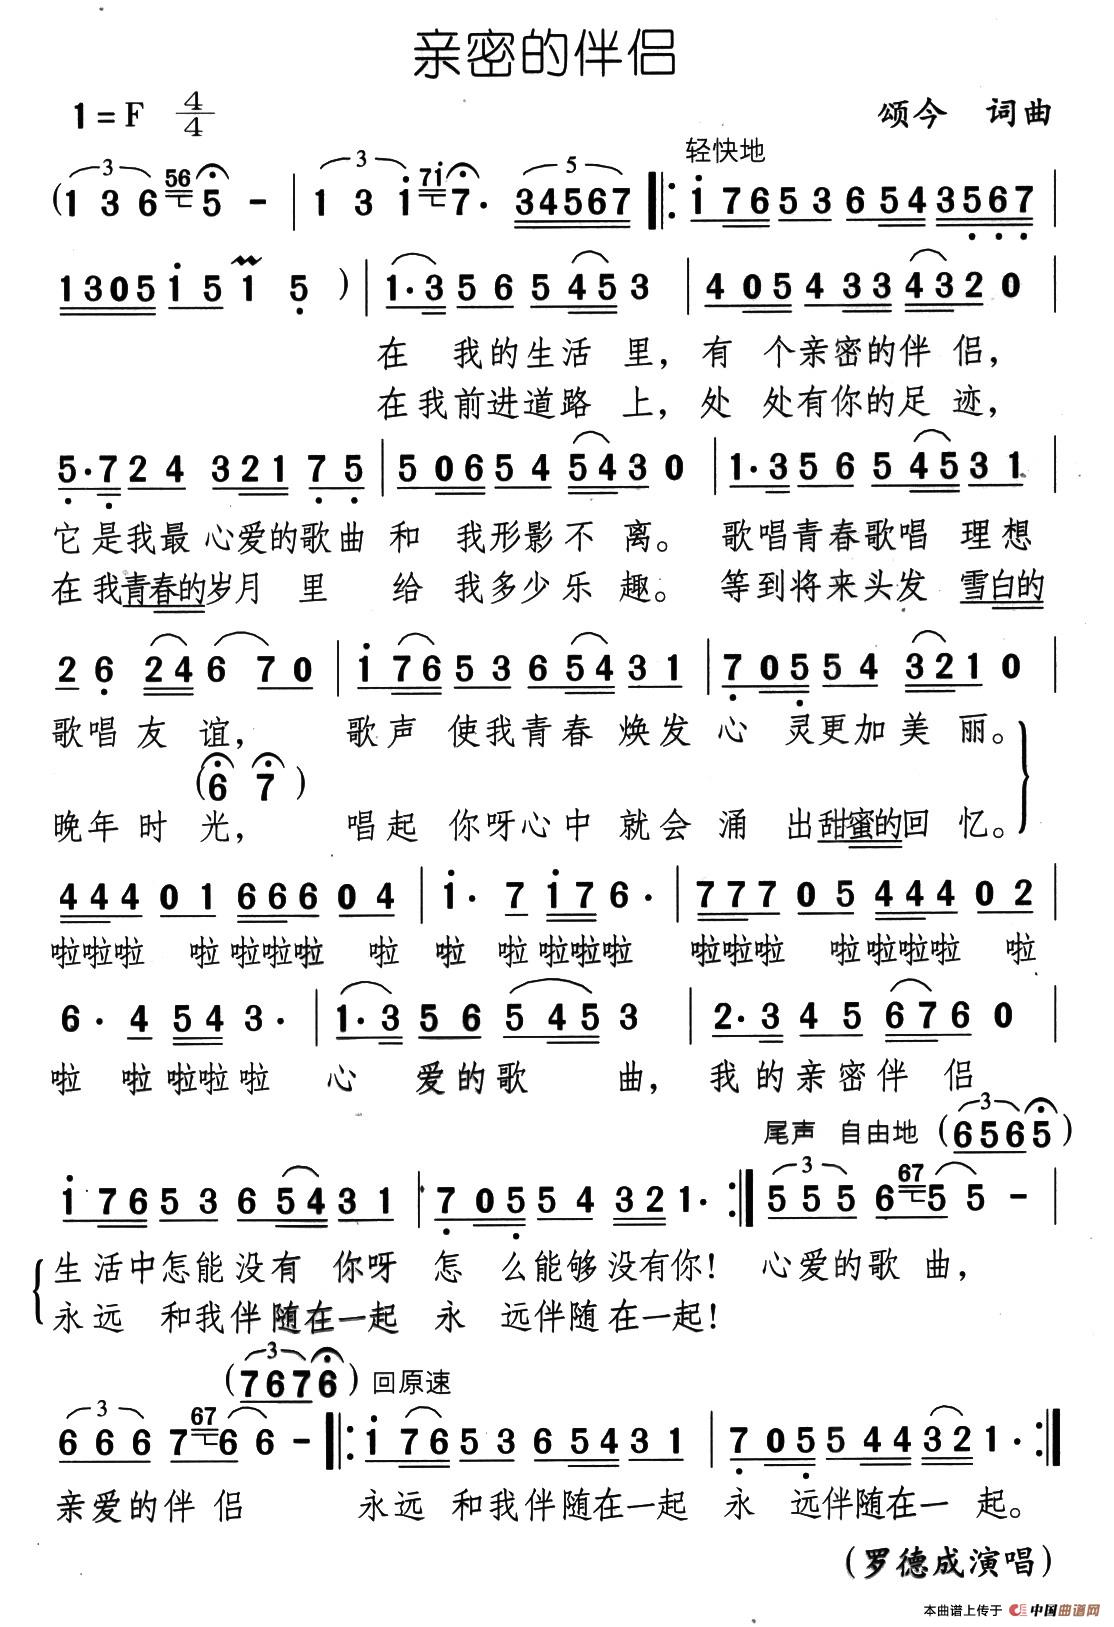 亲密的伴侣
1=F 4/4 颂今 词曲
轻快地
(1 3 6 56 5 - | 1 3 i 7i 7· 34567 ‖: i 76 53 6 54 3567 |
1305 i 5 1 5 ) | 1·3 56 5 45 3 | 4 05 4 33 4320 |
在 我的生活 里，有 个亲密的伴 侣，
在我前进道路 上，处 处有你的足 迹，
5·7 24 321 75 | 5 06 54 5430 | 1·3 56 5 4531 |
它是我最 心爱的歌曲 和 我形影不 离。 歌唱青春歌唱 理想
在我青春的岁月 里 给 我多少乐 趣。 等到将来头发 雪白的
2 6 246 70 | i 76 53 6 54 31 | 7 05 54 3210 |
歌唱 友 谊， 歌声 使我青春 焕发 心 灵更加美 丽。
(6 7)
晚年 时 光， 唱起 你呀心中 就会 涌 出甜蜜的回 忆。
444 01 666 04 | i· 7 i76· | 777 05 444 02 |
啦啦啦 啦 啦啦啦 啦 啦 啦 啦啦啦 啦啦啦 啦 啦啦啦 啦
6· 4 543· | 1·3 56 5 45 3 | 2·3 45 676 0 |
啦 啦 啦啦啦 心 爱的歌 曲， 我的亲密伴 侣
尾声 自由地 (6565)
i 76 53 6 54 31 | 7 05 54 321· :‖ 555 6 67 55 - |
生活中怎能没有 你呀 怎 么能够没有你！ 心爱的歌 曲，
永远 和我伴随在一起 永 远伴随在一起！
(7676) 回原速
666 7 67 66 - ‖: i 76 53 6 54 31 | 7 05 5 44 321· :‖
亲爱的伴 侣 永远 和我伴随在一起 永 远伴随在一 起。
（罗德成演唱）
本曲谱上传于 中国曲谱网